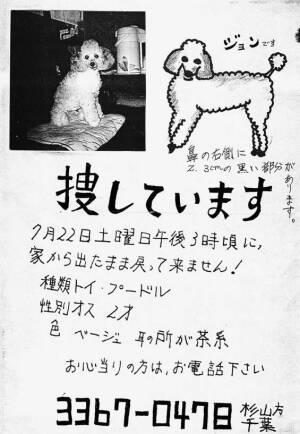 ジョンです
鼻の右側に
2.3cmの黒い部分が
あります。
捜しています
7月22日土曜日午後3時頃に,
家から出たまま戻って来ません!
種類トイ・プードル
性別オス 2才
色 ベージュ 耳の所が茶系
お心当りの方は,お電話下さい
3367-0478
杉山方
千葉